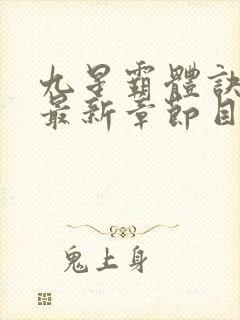 九星霸體訣
最新章節目
鬼上身